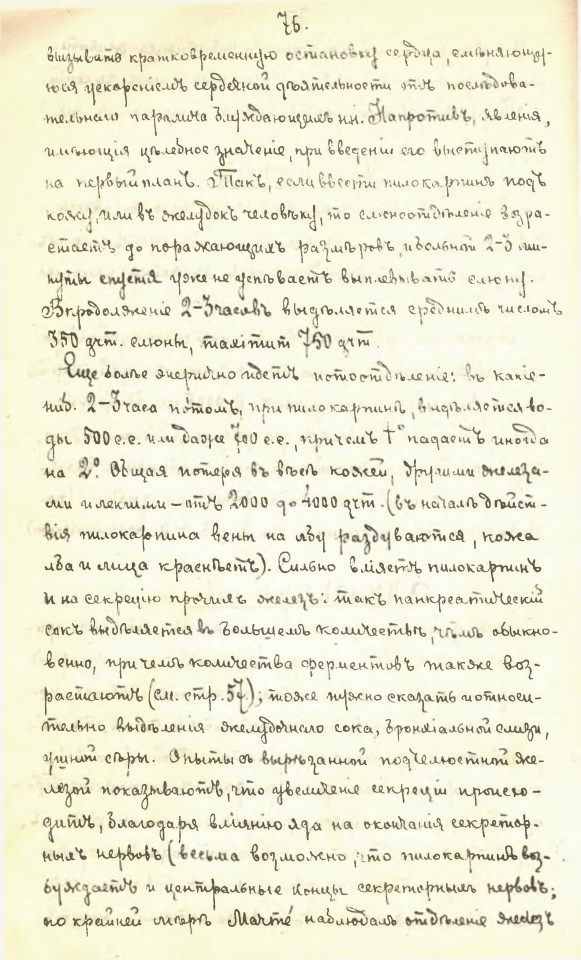 75.
вызывать кратковременную остановку сердца, смѣняющу-
юся ускореніемъ сердечной дѣятельности отъ послѣдова-
тельнаго паралича блуждающихъ нн. Напротивъ, явленія,
имѣющія цѣлебное значеніе, при введеніи его выступаютъ
на первый планъ. Такъ, если ввести пилокарпинъ подъ
кожу, или въ желудокъ человѣку, то слюноотдѣленіе возра-
стаетъ до поражающихъ размѣровъ, и больной 2-3 ми-
нуты спустя уже не успѣваетъ выплевывать слюну.
Впродолженіе 2-3 часовъ выдѣляется среднимъ числомъ
350 grm. слюны, maximum 750 grm.
Еще болѣе энергично идетъ потоотдѣленіе: въ какіе-
ниб. 2-3 часа потомъ, при пилокарпинѣ, выдѣляется во-
ды 500 c.c. или даже 700 c.c., причемъ t° падаетъ иногда
на 2°. Общая потеря въ вѣсѣ кожей, другими железа-
ми и легкими – отъ 2000 до 4000 grm. (въ началѣ дѣйст-
вія пилокарпина вены на лбу раздуваются, кожа
лба и лица краснѣетъ). Сильно вліяетъ пилокарпинъ
и на секрецію прочихъ железъ: такъ панкреатическій
сокъ выдѣляется въ большемъ количествѣ, чѣмъ обыкно-
венно, причемъ количества ферментовъ также воз-
растаютъ (см. стр. 57); тоже нужно сказать и относи-
тельно выдѣленія желудочнаго сока, бронхіальной слизи,
ушной сѣры. Опыты съ вырѣзанной подчелюстной же-
лезой показываютъ, что увеличеніе секреціи происхо-
дитъ, благодаря вліянію яда на окончанія секретор-
ныхъ нервовъ (весьма возможно, что пилокарпинъ воз-
буждаетъ и центральные концы секреторныхъ нервовъ;
по крайней мѣрѣ наблюдалъ отдѣленіе железъ